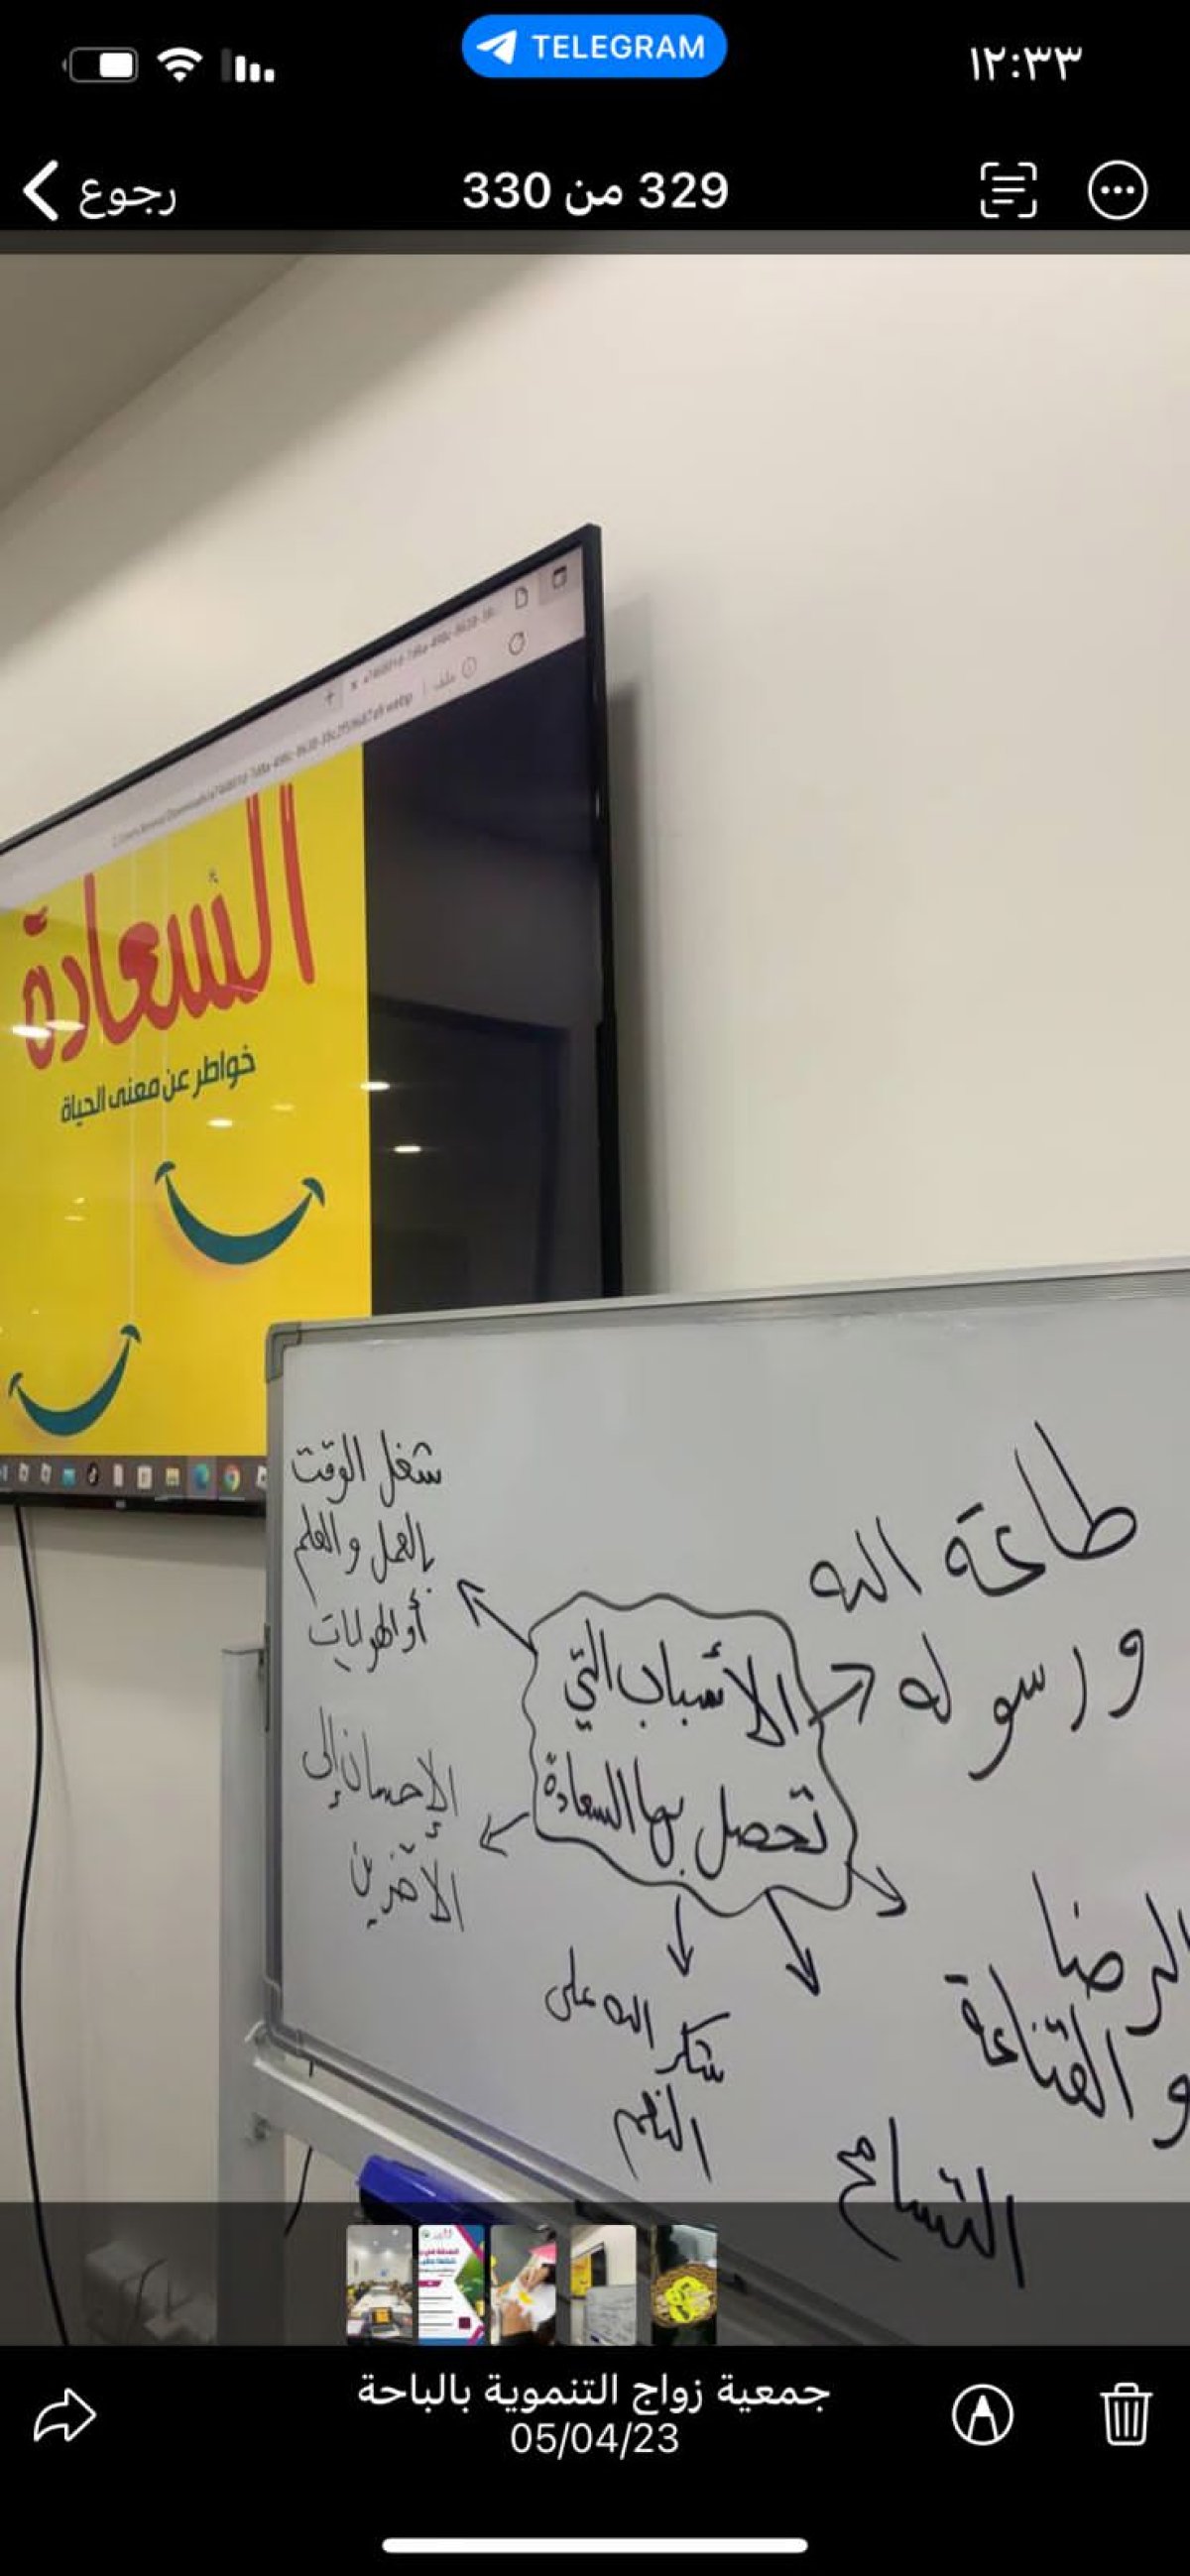 TELEGRAM
١٢:٣٣
رجوع
329 من 330
السعادة
خواطر عن معنى الحياة
شغل الوقت
بالعمل والعلم
أو الهوايات
طاعة الله
ورسوله
الأسباب التي
تحصل بها السعادة
الإحسان إلى
الآخرين
الرضا
والقناعة
شكر الله على
النعم
التسامح
جمعية زواج التنموية بالباحة
05/04/23